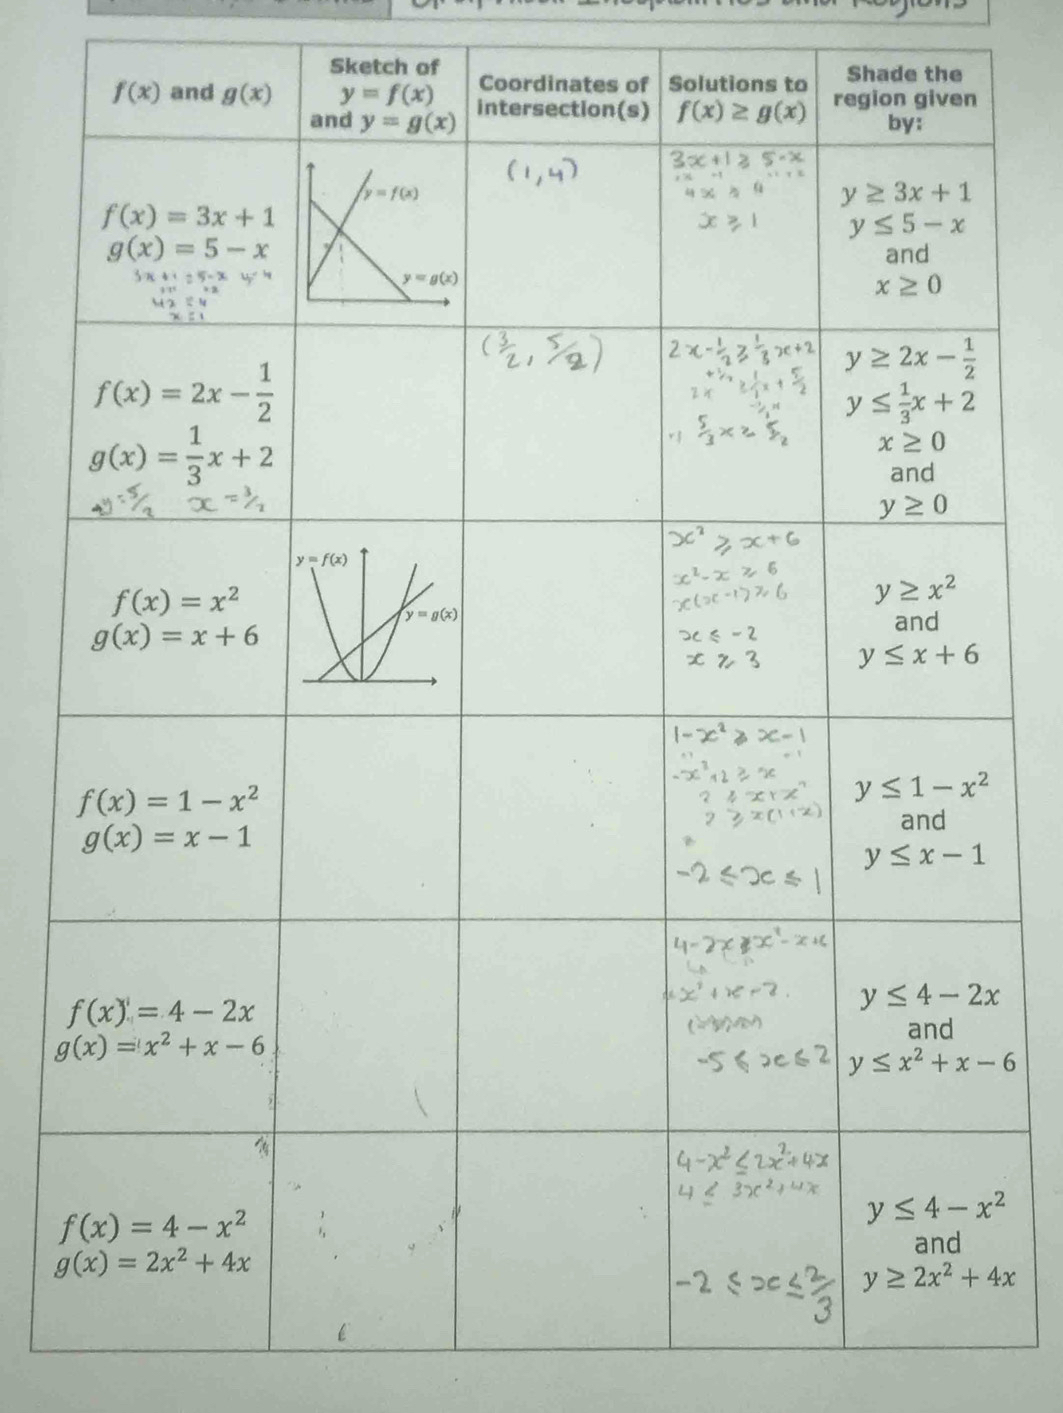 f(x) and g(x)
Sketch of
y = f(x)
and y = g(x)
Coordinates of
intersection(s)
Solutions to
f(x) ≥ g(x)
Shade the
region given
by:
f(x) = 3x + 1
g(x) = 5 − x
3x+1 = 5-x y=4
4x = 4
x = 1
y = f(x)
y = g(x)
(1,4)
3x+1 ≥ 5-x
4x ≥ 4
x ≥ 1
y ≥ 3x + 1
y ≤ 5 − x
and
x ≥ 0
f(x) = 2x − 1/2
g(x) = 1/3 x + 2
y = 5/2 x = 3/2
(3/2, 5/2)
2x-1/2 ≥ 1/3 x+2
2x ≥ 1/3 x + 5/2
5/3 x ≥ 5/2
y ≥ 2x − 1/2
y ≤ 1/3 x + 2
x ≥ 0
and
y ≥ 0
f(x) = x²
g(x) = x + 6
y = f(x)
y = g(x)
x² ≥ x+6
x²-x ≥ 6
x(x-1) ≥ 6
x ≤ -2
x ≥ 3
y ≥ x²
and
y ≤ x + 6
f(x) = 1 − x²
g(x) = x − 1
1-x² ≥ x-1
-x²+2 ≥ x
2 ≥ x+x²
2 ≥ x(1+x)
-2 ≤ x ≤ 1
y ≤ 1 − x²
and
y ≤ x − 1
f(x) = 4 − 2x
g(x) = x² + x − 6
-5 ≤ x ≤ 2
y ≤ 4 − 2x
and
y ≤ x² + x − 6
f(x) = 4 − x²
g(x) = 2x² + 4x
4-x² ≤ 2x²+4x
4 ≤ 3x²+4x
-2 ≤ x ≤ 2/3
y ≤ 4 − x²
and
y ≥ 2x² + 4x